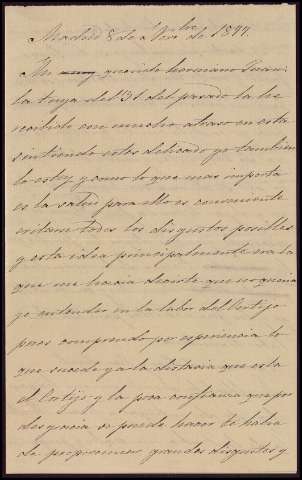 Madrid 8 de Nvbre de 1897.
Mi muy querido hermano Juan:
la tuya del 31 del pasado la he
recibido con mucho atraso en esta
sintiendo estes delicado yo tambien
lo estoy y como lo que mas importa
es la salud para ello es conveniente
evitarse todos los disgustos posibles
y esta idea principalmente era la
que me hacia decirte que no queria
yo entender en la labor del Cortijo
pues comprendo por esperiencia lo
que sucede y a la distancia que esta
el Cortijo y la poca confianza que por
desgracia se puede hacer te habia
de proporcionar grandes disgustos y